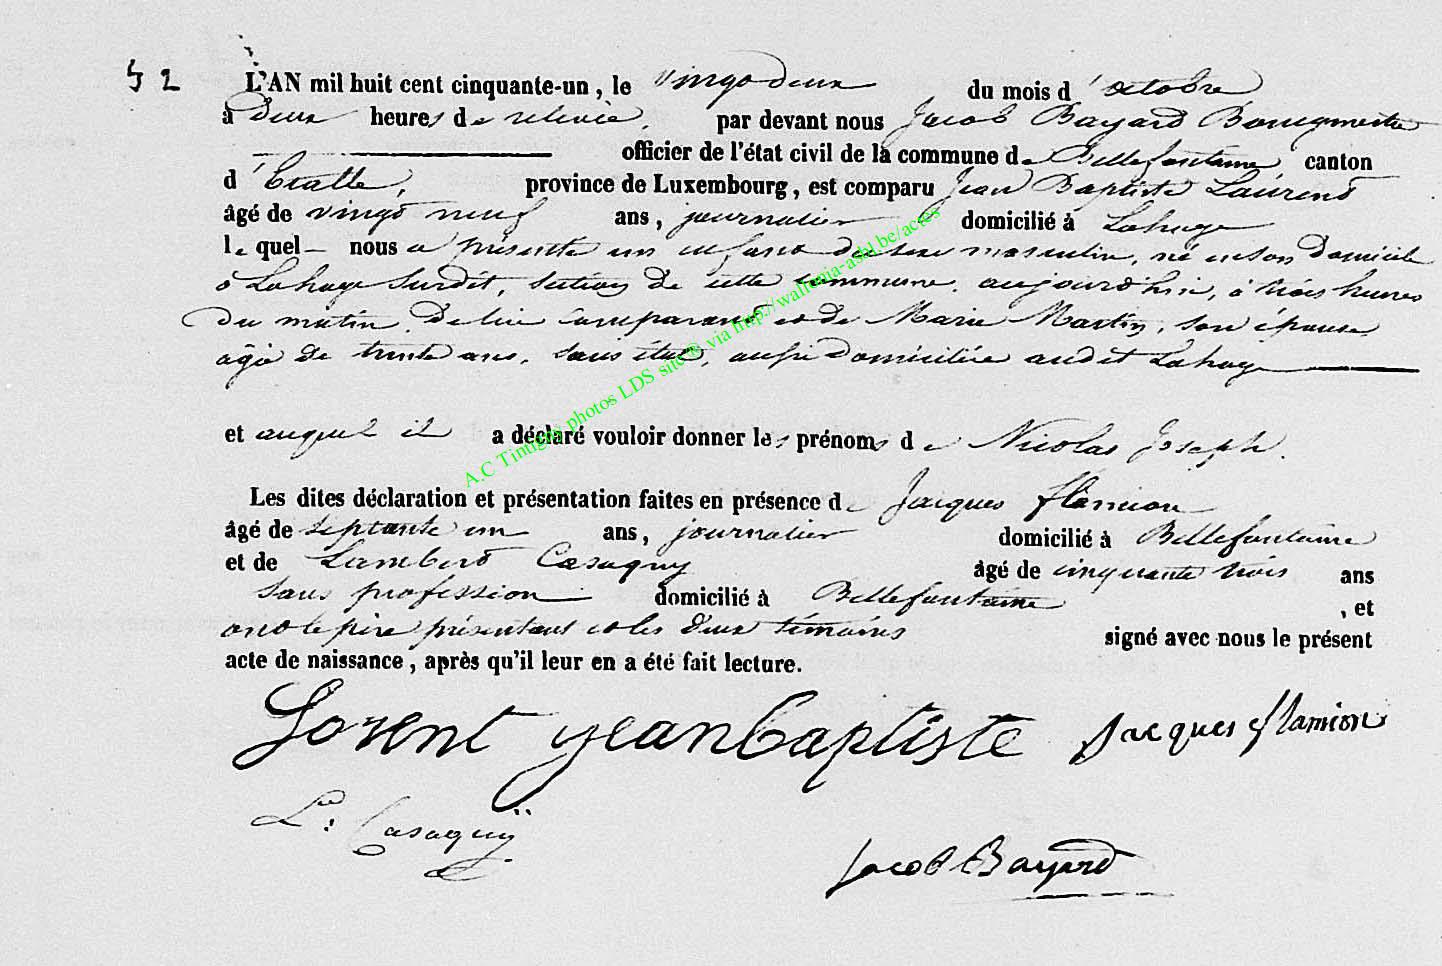 52
L'AN mil huit cent cinquante-un, le vingt deux du mois d'octobre
à deux heures de relevée, par devant nous Jacob Bayard Bourgmestre
officier de l'état civil de la commune de Bellefontaine canton
d'Etalle, province de Luxembourg, est comparu Jean Baptiste Laurent
âgé de vingt neuf ans, journalier domicilié à Lahage
lequel nous a présenté un enfant de sexe masculin, né en son domicile
à Lahage susdit, section de cette commune, aujourd'hui, à trois heures
du matin, de lui comparant et de Marie Martin, son épouse,
agée de trente ans, sans état, aussi domiciliée audit Lahage
et auquel il a déclaré vouloir donner les prénoms de Nicolas Joseph.
Les dites déclaration et présentation faites en présence de Jacques flamion
âgé de septante un ans, journalier domicilié à Bellefontaine
et de Lambert Casaquy âgé de cinquante trois ans
sans profession domicilié à Bellefontaine, et
ont le père présentant et les deux témoins signé avec nous le présent
acte de naissance, après qu'il leur en a été fait lecture.
Lorent jeanbaptiste Jacques flamion
Lt: Casaquÿ
Jacob Bayard
A.C Tintigny photos LDS site® via http://wallonia-asbl.be/actes